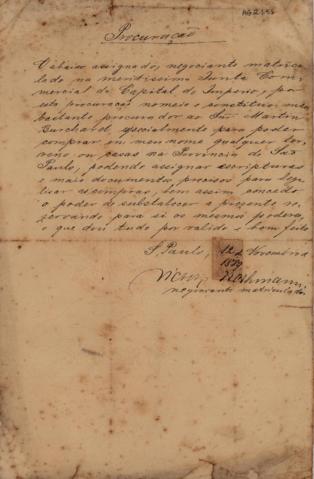 AG2555
Procuração
O abaixo assignado, negociante matricu-
lado na meritissima Junta Com-
mercial da Capital do Imperio, por
esta procuração nomeio e constituo meu
bastante procurador ao Snr. Martin
Burchard, especialmente para poder
comprar em meu nome qualquer ter-
reno ou casas na Provincia de São
Paulo, podendo assignar escripturas
e mais documentos precisos para lega-
lisar as compras, bem assim concedo
o poder de substabelecer a presente re-
servando para si os mesmos poderes,
o que dou tudo por valido e bom feito
S. Paulo, 12 de Novembro
1879
Victor Nothmann,
negociante matriculado.